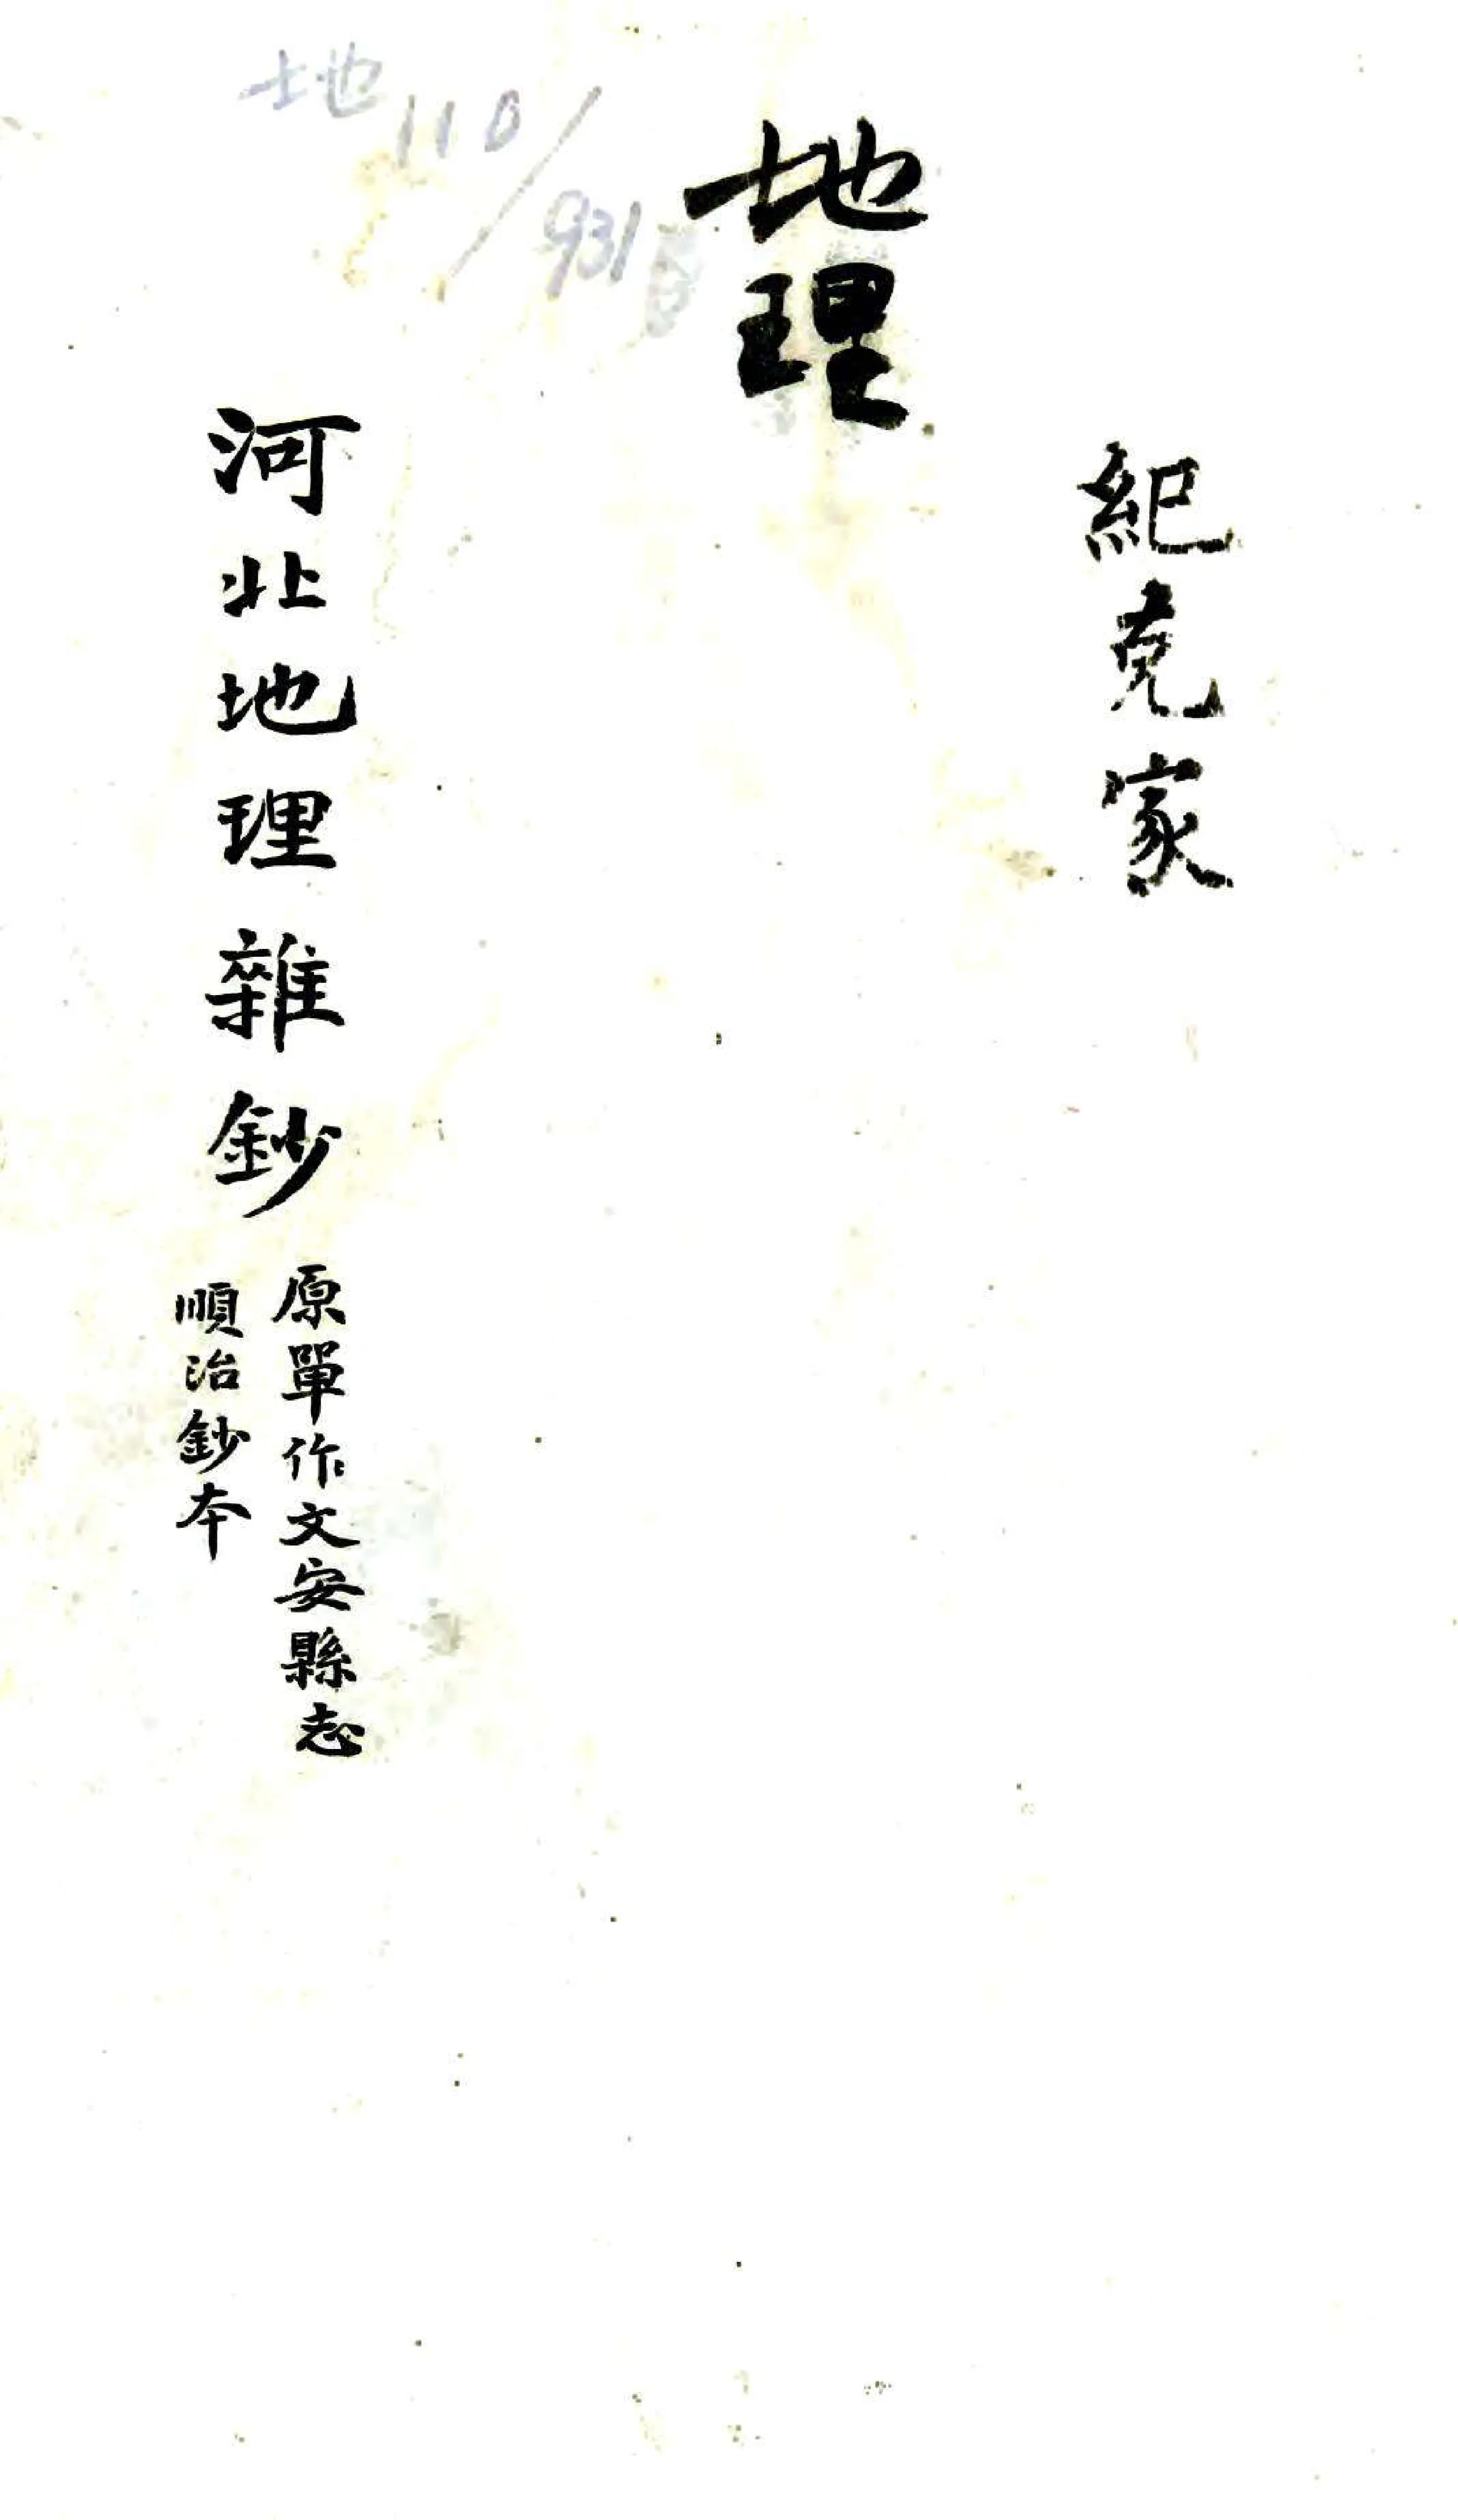 紀克家
地理
地110/931
河北地理雜鈔
原單作文安縣志
順治鈔本